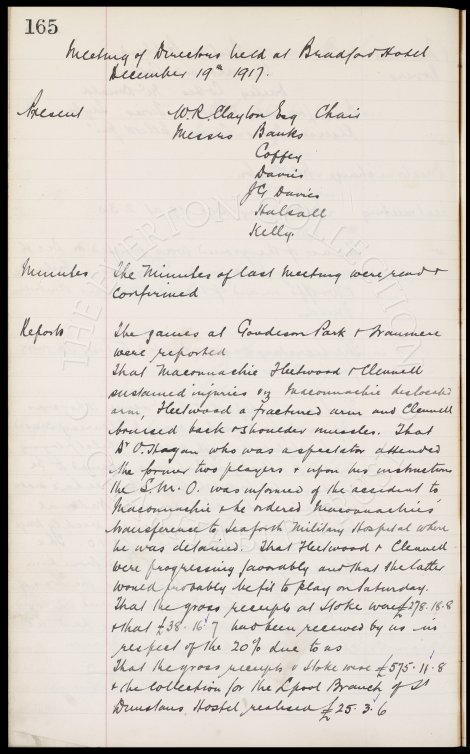 165
Meeting of Directors held at Bradford Hotel
December 19th 1917.
Present W.R. Clayton Esq Chair
Messrs Banks
Coffey
Davies
J G Davies
Halsall
Kelly
Minutes The Minutes of last Meeting were read &
confirmed
Reports The games at Goodison Park & Tranmere
were reported
That Maconnachie Fleetwood & Clennell
sustained injuries viz Maconnachie dislocated
arm, Fleetwood a fractured arm and Clennell
bruised back & shoulder muscles. That
Dr O'Hagan who was a spectator attended
the former two players & upon his instructions
the S.M.O. was informed of the accident to
Maconnachie & he ordered Maconnachie's
transference to Seaforth Military Hospital where
he was detained. That Fleetwood & Clennell
were progressing favorably and that the latter
would probably be fit to play on Saturday.
That the gross receipts at Stoke were £278.18.8
& that £38.16.7 had been received by us in
respect of the 20% due to us
That the gross receipts v Stoke were £575.11.8
& the collection for the Lpool Branch of St
Dunstans Hostel realised £25.3.6
THE EVERTON COLLECTION